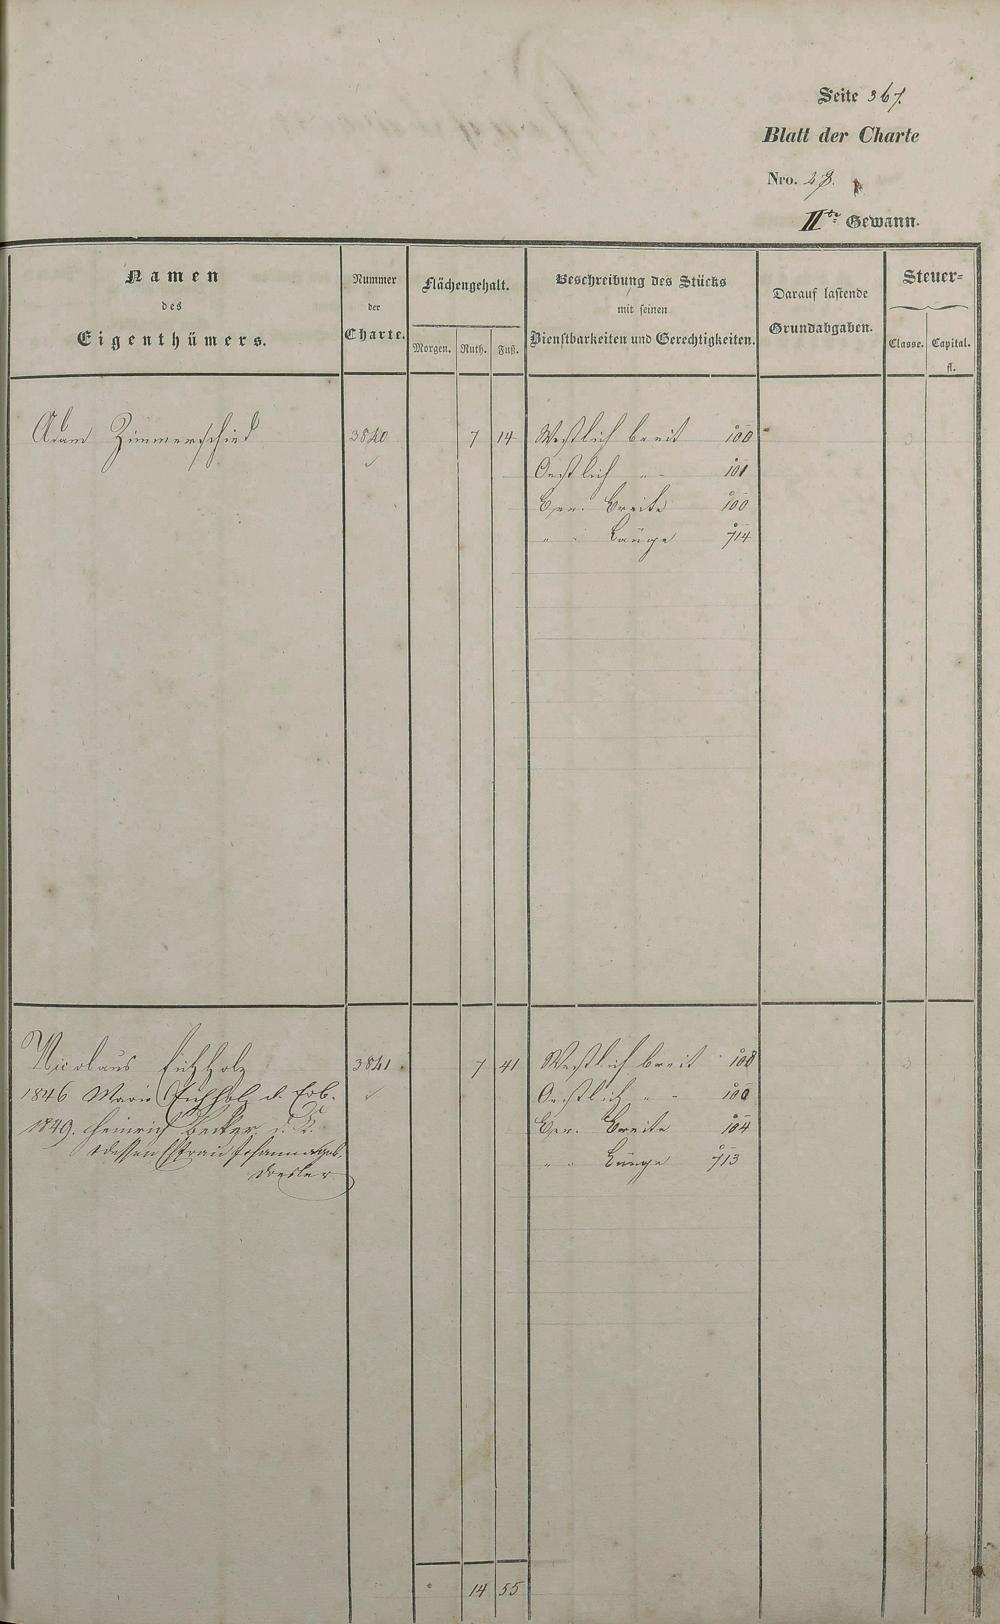 Seite 367.
Blatt der Charte
Nro. 28.
IIte Gewann.
Namen
des
Eigenthümers.
Nummer
der
Charte.
Flächengehalt.
Morgen. Ruth. Fuß.
Beschreibung des Stücks
mit seinen
Dienstbarkeiten und Gerechtigkeiten.
Darauf lastende
Grundabgaben.
Steuer=
Classe. Capital.
fl.
Adam Zimmerschied 3840 7 14 Westlich breit 100
Oestlich " - 101
Ger. Breite 100
" " Länge 714
Nicolaus Eichholz 3841. 7 41 Westlich breit 108
1846 Marie Eichholz d. Erb. Oestlich " - 100
1849. Heinrich Becker. Ger. Breite 104
dessen Ehefrau Johanna geb. " " Länge 713
14 55